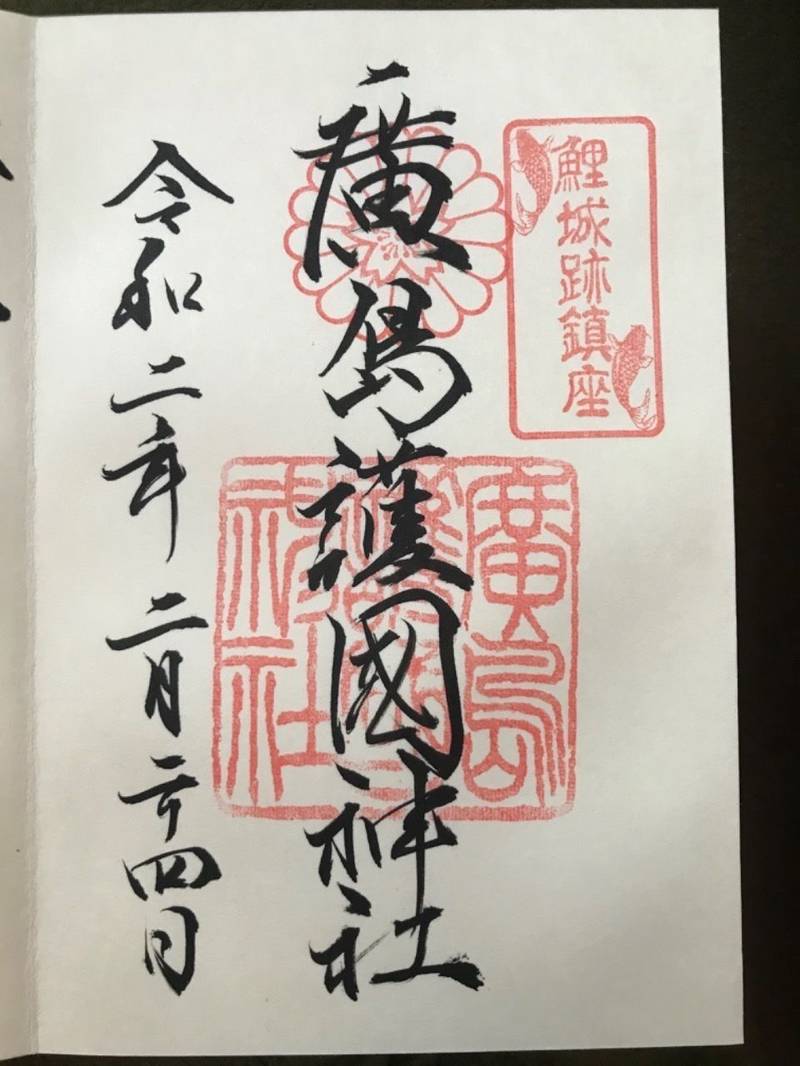 鯉城跡鎮座
廣島護國神社
廣島護國神社
令和二年二月二十四日